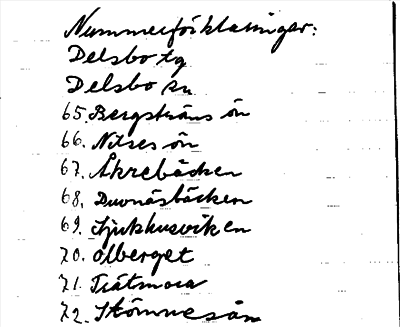 Nummerförklaringar:
Delsbo tg
Delsbo sn
65. Bergströms ön
66. Nilses ön
67. Åkrebäcken
68. Duvnäsbäcken
69. Sjukhusviken
70. Olberget
71. Trätmora
72. Stömnesån